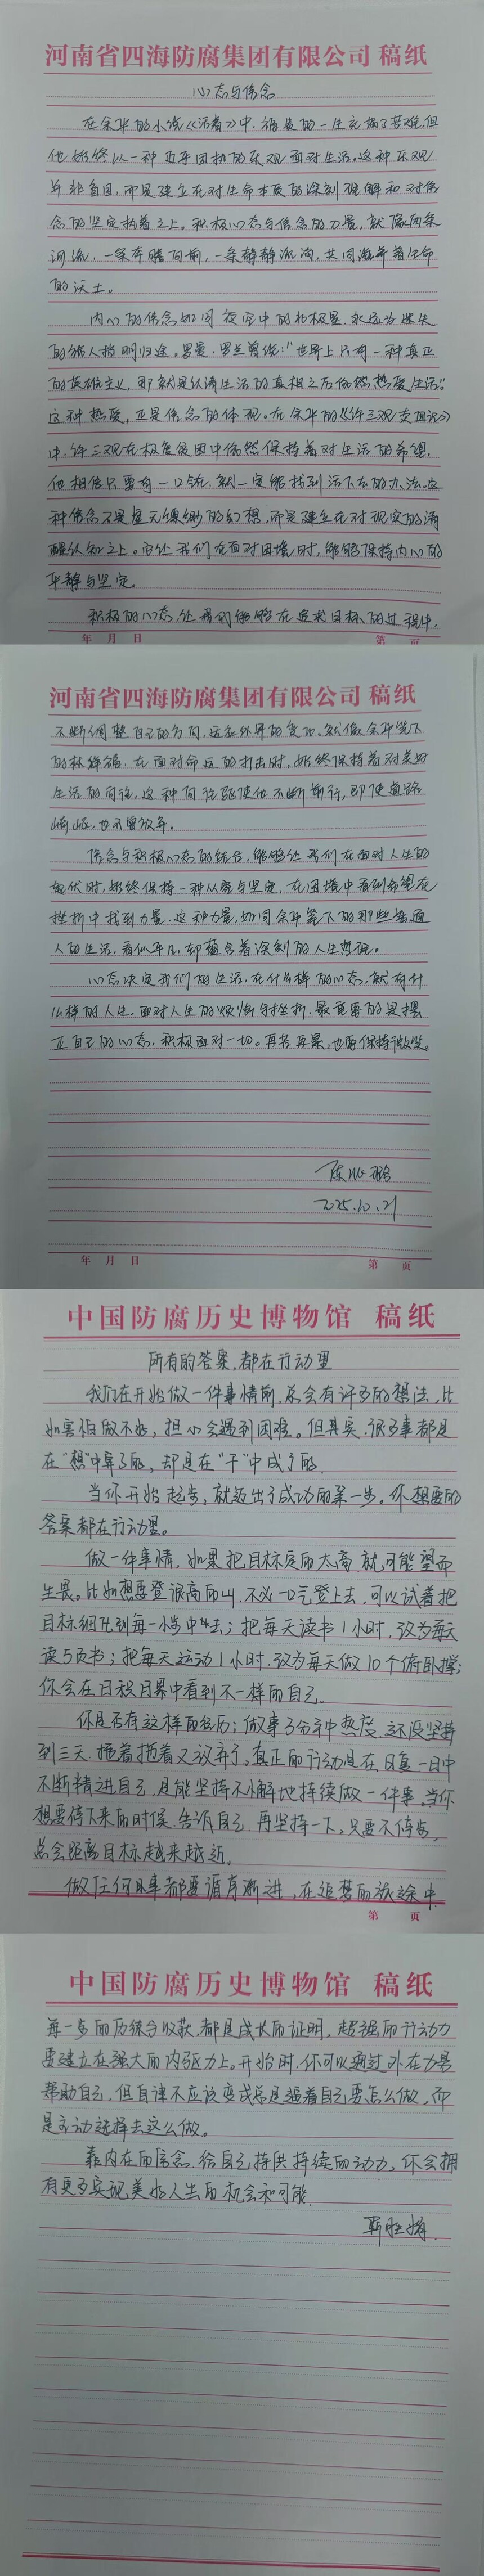 河南省四海防腐集团有限公司 稿纸
心态与信念
在余华的小说《活着》中，福贵的一生充满了苦难，但
他始终以一种近乎固执的乐观面对生活。这种乐观
并非盲目，而是建立在对生命本质的深刻理解和对信
念的坚定执着之上。积极心态与信念的力量，就像两条
河流，一条奔腾向前，一条静静流淌，共同滋养着生命
的沃土。
内心的信念如同夜空中的北极星，永远为迷失
的旅人指明归途。罗曼·罗兰曾说："世界上只有一种真正
的英雄主义，那就是认清生活的真相之后依然热爱生活。"
这种热爱，正是信念的体现。在余华的《许三观卖血记》
中，许三观在极度贫困中依然保持着对生活的希望，
他相信只要有一口气在，就一定能找到活下去的办法。这
种信念不是虚无缥缈的幻想，而是建立在对现实的清
醒认知之上。它让我们在面对困境时，能够保持内心的
平静与坚定。
积极的心态，让我们能够在追求目标的过程中，
年 月 日
第 页
河南省四海防腐集团有限公司 稿纸
不断调整自己的方向，适应外界的变化。就像余华笔下
的林祥福，在面对命运的打击时，始终保持着对美好
生活的向往，这种向往驱使他不断前行，即使道路
崎岖，也不曾放弃。
信念与积极心态的结合，能够让我们在面对人生的
起伏时，始终保持一种从容与坚定，在困境中看到希望，在
挫折中找到力量。这种力量，如同余华笔下的那些普通
人的生活，看似平凡，却蕴含着深刻的人生哲理。
心态决定我们的生活，在什么样的心态，就有什
么样的人生，面对人生的烦恼与挫折，最重要的是摆
正自己的心态，积极面对一切。再苦再累，也要保持微笑。
2025.10.21
年 月 日
第 页
中国防腐历史博物馆 稿纸
所有的答案，都在行动里
我们在开始做一件事情前，总会有许多的想法，比
如害怕做不好，担心会遇到困难。但其实，很多事都是
在"想"中算了的，却是在"干"中成了的。
当你开始起步，就迈出了成功的第一步。你想要的
答案都在行动里。
做一件事情，如果把目标定的太高，就可能望而
生畏。比如想要登很高的山，不必一口气登上去，可以试着把
目标细化到每一小步中去；把每天读书1小时，改为每天
读5页书；把每天运动1小时，改为每天做10个俯卧撑；
你会在日积月累中看到不一样的自己。
你是否有这样的经历；做事3分钟热度，还没坚持
到三天，拖着拖着又放弃了。真正的行动是在日复一日中
不断精进自己，是能坚持不懈地持续做一件事。当你
想要停下来的时候，告诉自己，再坚持一下，只要不停步，
总会距离目标越来越近。
做任何事都要循序渐进，在追梦的旅途中，
第 页
中国防腐历史博物馆 稿纸
每一步的历练与收获，都是成长的证明，超强的行动力
要建立在强大的内驱力上。开始时，你可以通过外在力量
帮助自己，但自律不应该变成总是逼着自己要怎么做，而
是主动选择去这么做。
靠内在的信念，给自己提供持续的动力，你会拥
有更多实现美好人生的机会和可能。